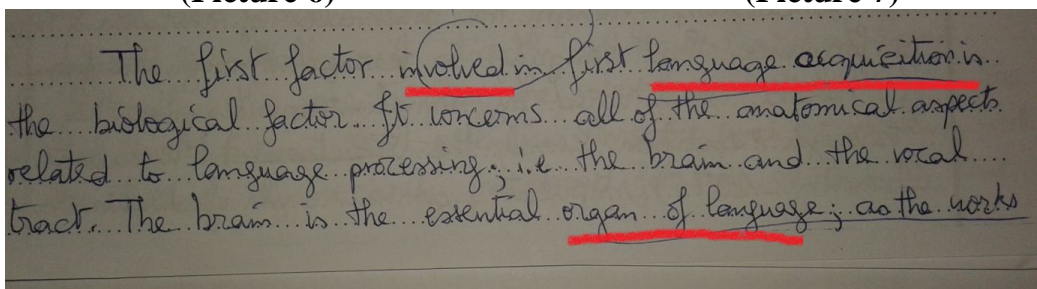 (Picture 6) (Picture 7)
The first factor involved in first language acquisition is
the biological factor. It concerns all of the anatomical aspects
related to language processing; i.e the brain and the vocal
tract. The brain is the essential organ of language; as the works